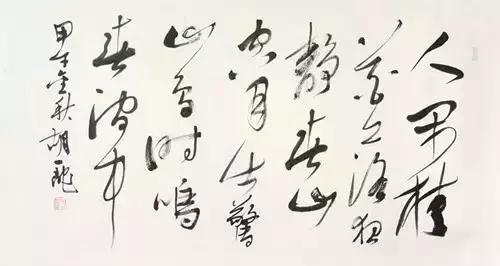 人闲桂
花落夜
静春山
空月出驚
山鸟时鸣
春涧中
甲午金秋胡